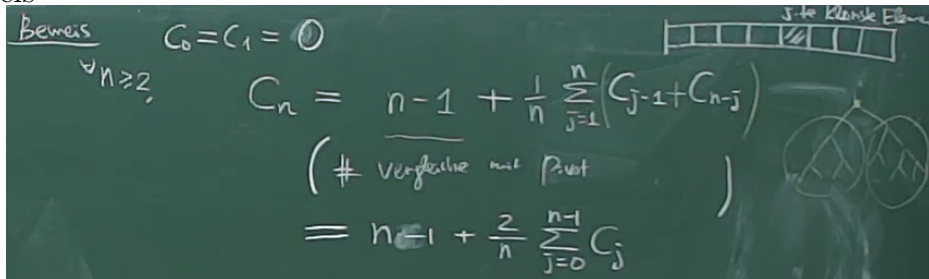 eis
Beweis C₀ = C₁ = 0 j-te kleinste Elem
∀n≥2. Cₙ = n-1 + 1/n ∑_{j=1}^{n} (C_{j-1} + C_{n-j})
(# Vergleiche mit Pivot)
= n-1 + 2/n ∑_{j=0}^{n-1} C_j